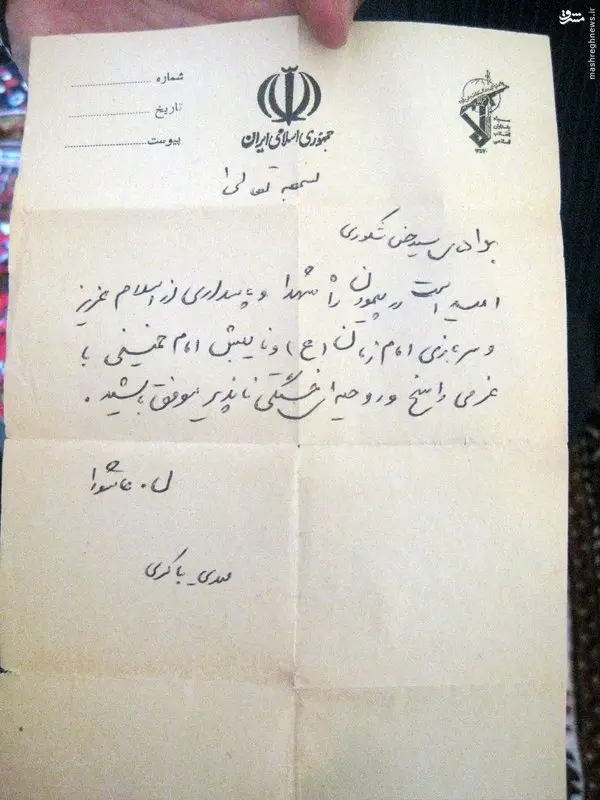 مشرق
mashreghnews.ir
شماره
تاریخ
پیوست
جمهوری اسلامی ایران
بسمه تعالی
برادر سید شکوری
امید است در پیمودن راه شهدا و پاسداری از اسلام عزیز
و سربازی امام زمان (عج) و نایبش امام خمینی با
عزمی راسخ و روحیه‌ای خستگی ناپذیر موفق باشید.
ل. عاشورا
مهدی باکری